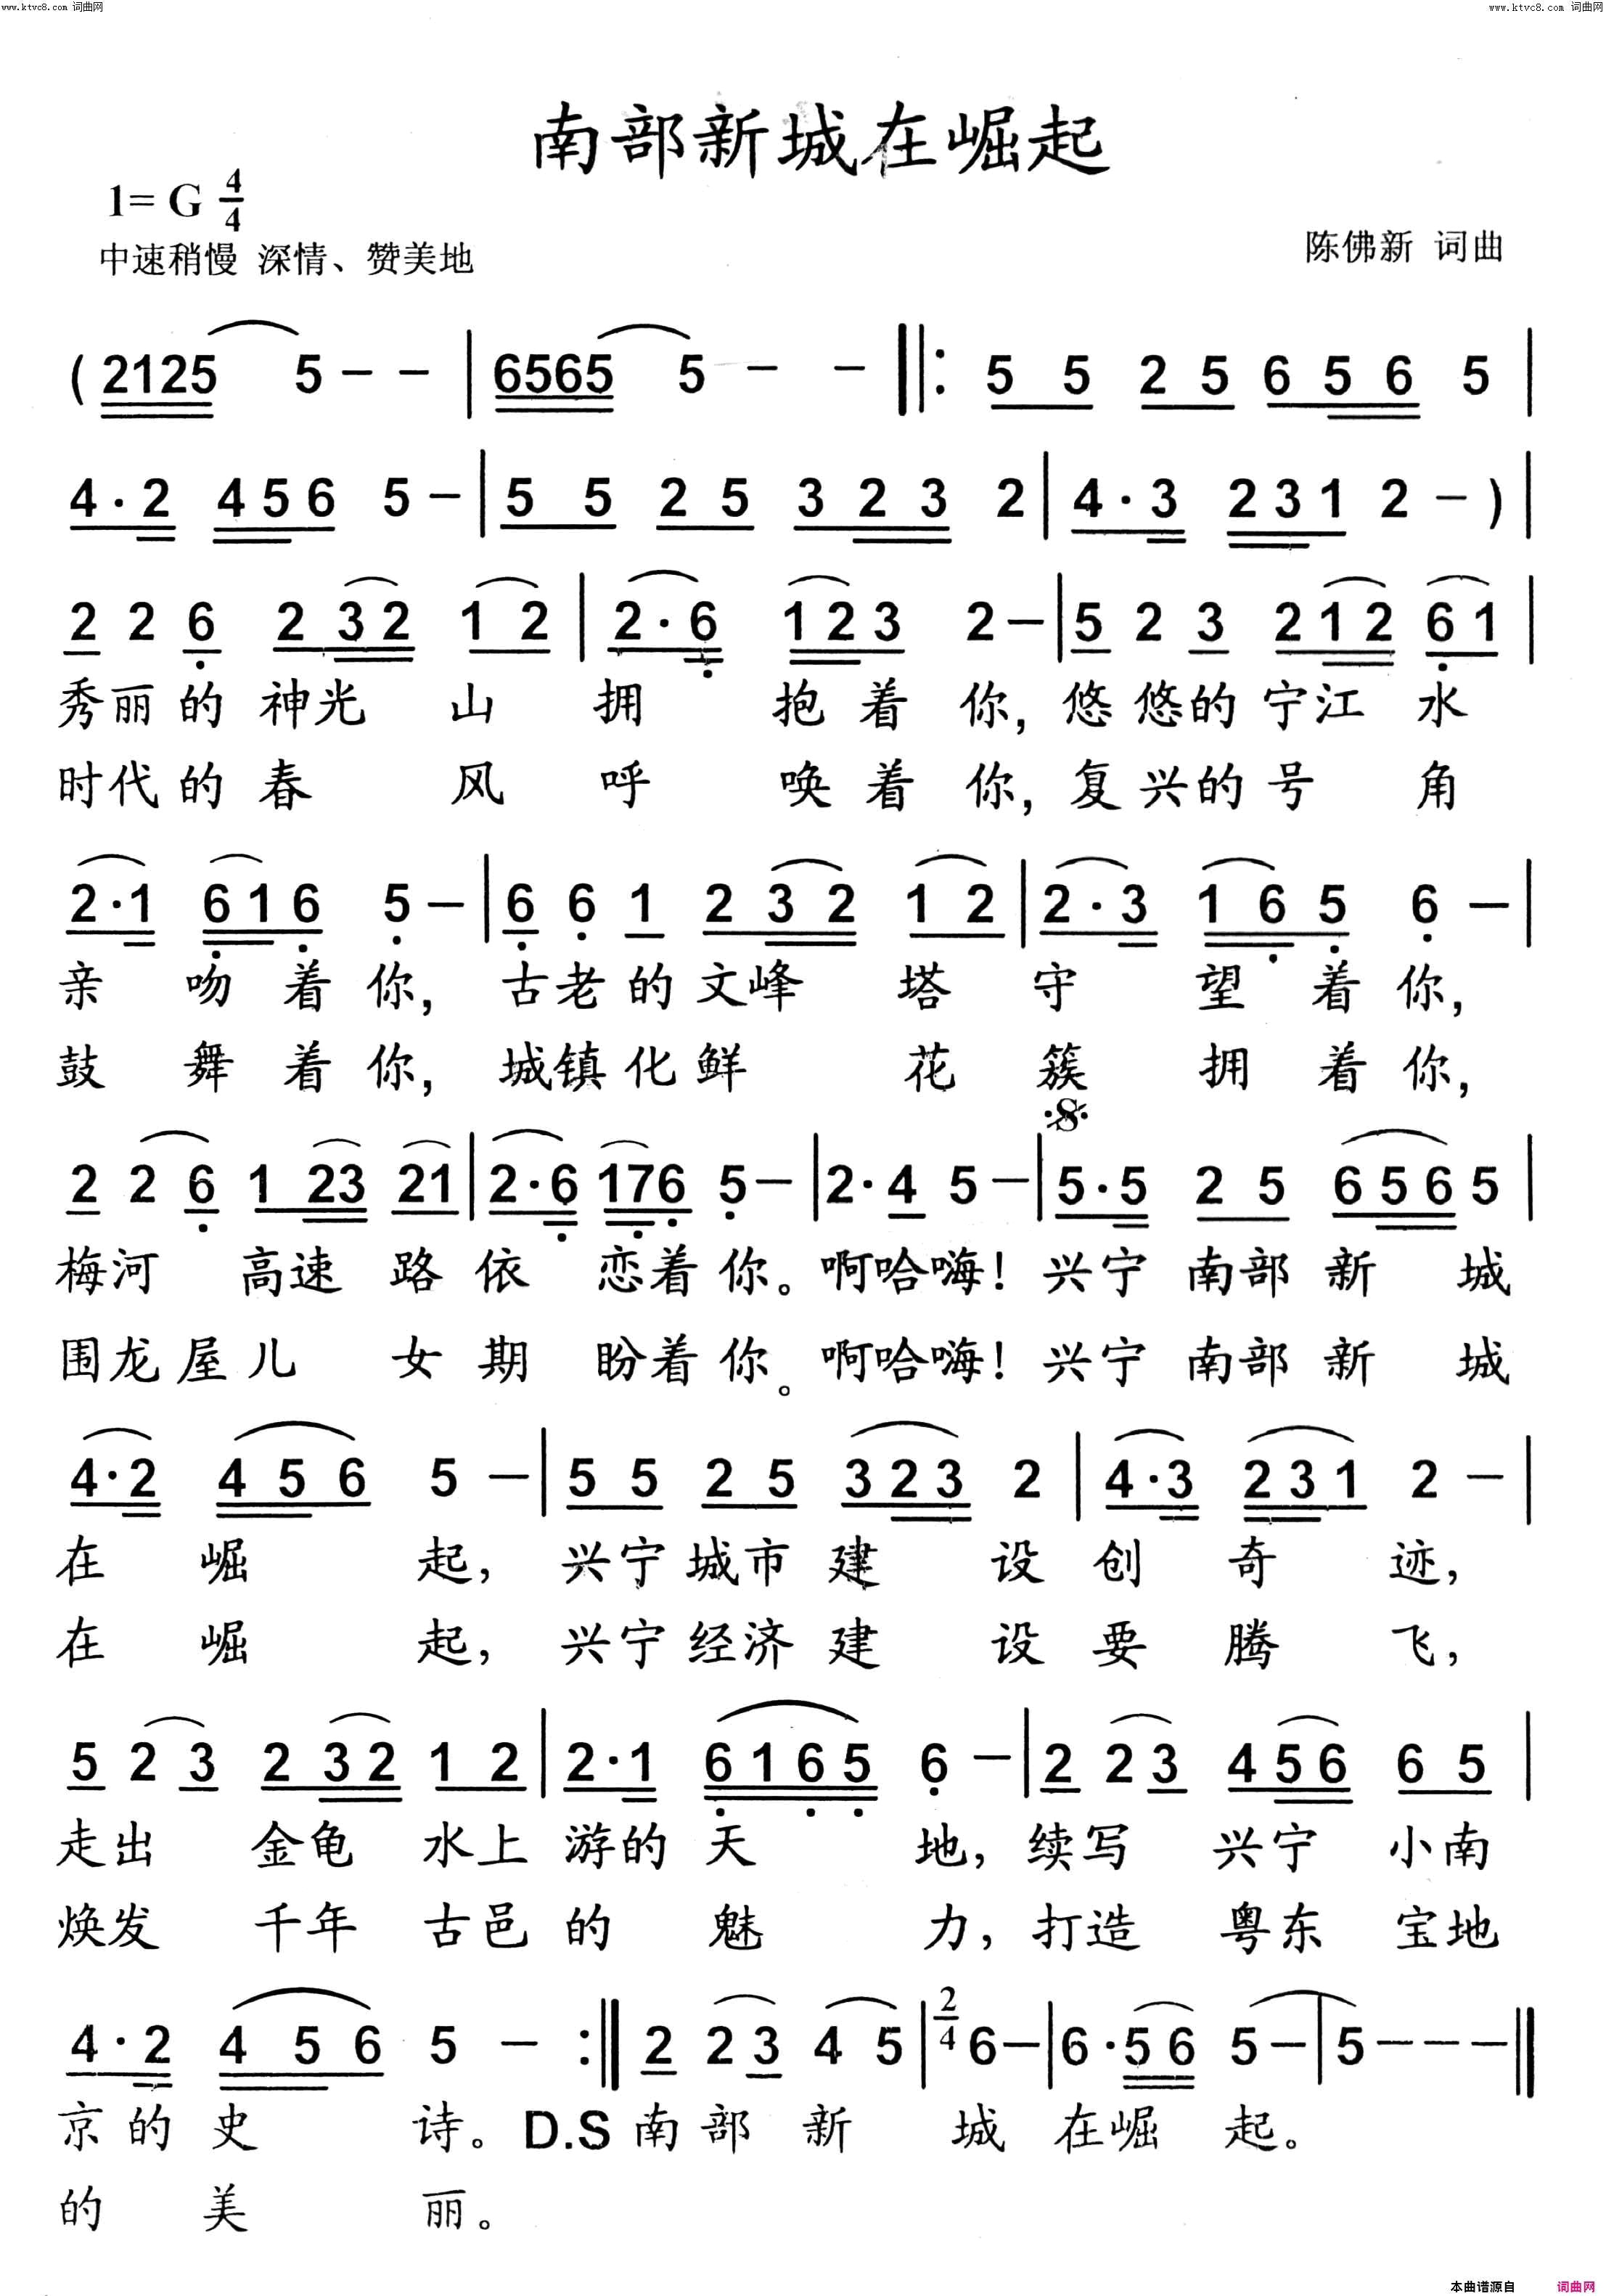 www.ktvc8.com 词曲网 www.ktvc8.com 词曲网
南部新城在崛起
1= G 4/4
中速稍慢 深情、赞美地 陈佛新 词曲
( 2125 5 - - | 6565 5 - - ‖: 5 5 2 5 6 5 6 5 |
4·2 4 5 6 5 - | 5 5 2 5 3 2 3 2 | 4·3 2 3 1 2 - ) |
2 2 6 2 3 2 1 2 | 2·6 1 2 3 2 - | 5 2 3 2 1 2 6 1 |
秀丽的神光山拥抱着你,悠悠的宁江水
时代的春风呼唤着你,复兴的号角
2·1 6 1 6 5 - | 6 6 1 2 3 2 1 2 | 2·3 1 6 5 6 - |
亲吻着你,古老的文峰塔守望着你,
鼓舞着你,城镇化鲜花簇拥着你,
2 2 6 1 23 21 | 2·6 176 5 - | 2·4 5 - | 5·5 2 5 6 5 6 5 |
梅河高速路依恋着你。啊哈嗨!兴宁南部新城
围龙屋儿女期盼着你。啊哈嗨!兴宁南部新城
4·2 4 5 6 5 - | 5 5 2 5 3 2 3 2 | 4·3 2 3 1 2 - |
在崛起,兴宁城市建设创奇迹,
在崛起,兴宁经济建设要腾飞,
5 2 3 2 3 2 1 2 | 2·1 6 1 6 5 6 - | 2 2 3 4 5 6 6 5 |
走出金龟水上游的天地,续写兴宁小南
焕发千年古邑的魅力,打造粤东宝地
4·2 4 5 6 5 - :‖ 2 2 3 4 5 | 2/4 6 - | 6·5 6 5 - | 5 - - - ‖
京的史诗。D.S 南部新城在崛起。
的美丽。
本曲谱源自 词曲网